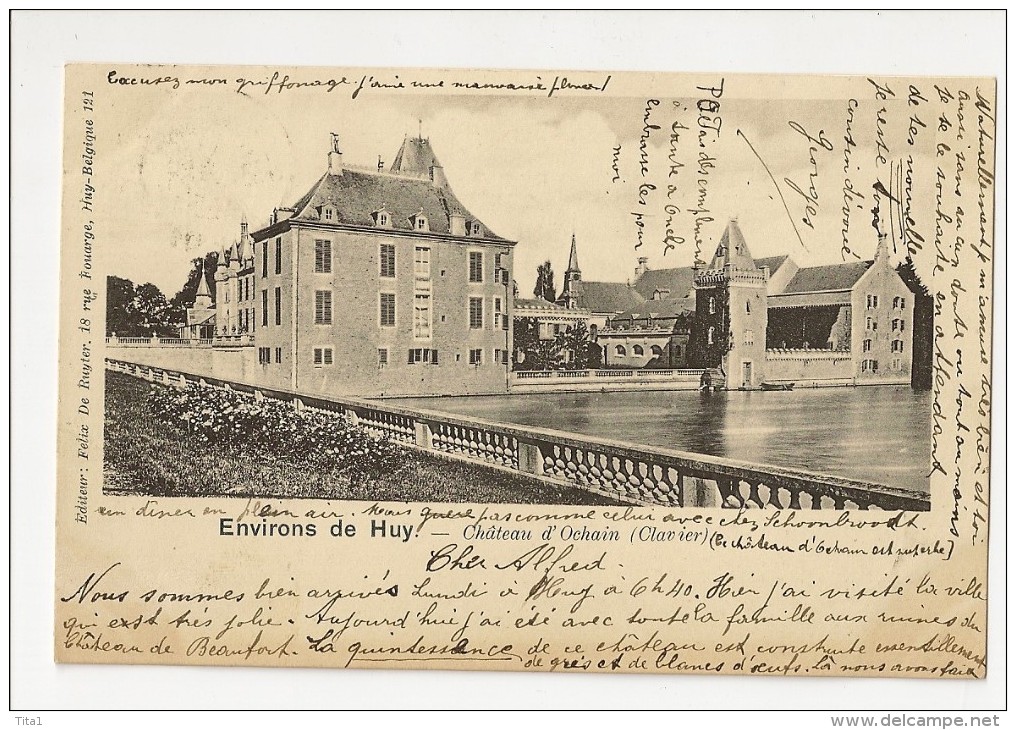 Excusez mon griffonage. J'ai une mauvaise plume!
Editeur: Felix De Ruyter. 18 rue Fouarge, Huy-Belgique 121
Environs de Huy. — Château d'Ochain (Clavier)
(Ce château d'Ochain est superbe)
Cher Alfred.
Nous sommes bien arrivés Lundi à Huy à 6h40. Hier j'ai visité la ville
qui est très jolie. Aujourd'hui j'ai été avec toute la famille aux ruines du
Château de Beaufort. La quintessence de ce château est construite essentillement
de grès et de blancs d'œufs. Là nous avons fait
un diner en plein air. Mais guère pas comme celui avec chez
Naturellement, m'amuse très bien et toi
aussi sans aucun doute ou tout au moins
je te le souhaite en attendant
de tes nouvelles
Je reste ton
cousin dévoué
Georges
embrasse les pour
moi
Tita1
www.delcampe.net